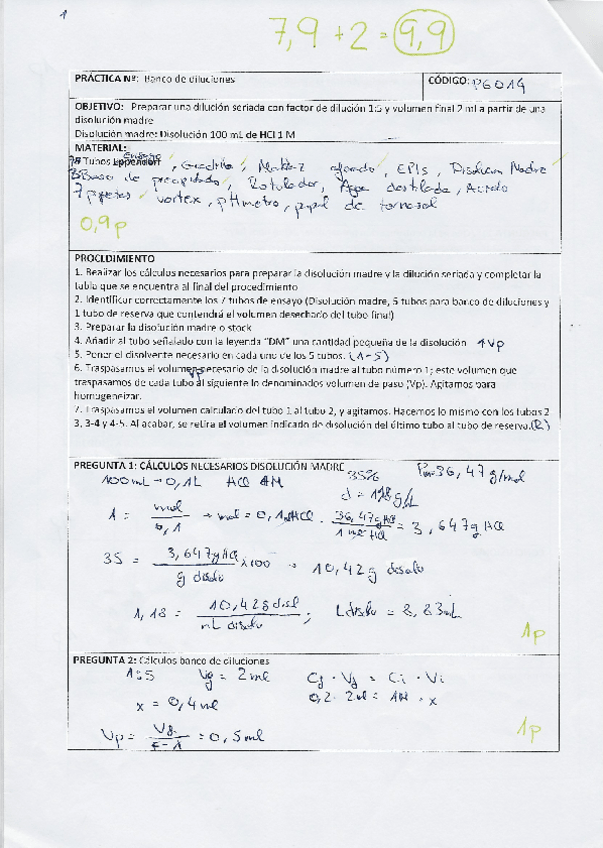 1
7,9 + 2 = 9,9
PRÁCTICA Nº: Banco de diluciones
CÓDIGO: P6014
OBJETIVO: Preparar una dilución seriada con factor de dilución 1:5 y volumen final 2 ml a partir de una
disolución madre
Disolución madre: Disolución 100 mL de HCl 1 M
MATERIAL:
Ensayo
7 Tubos Eppendorf, Gradilla, Matraz aforado, EPIs, Disolucion Madre
3 Baso de precipitado, Rotulador, Agua destilada, Acido
7 pipetas, vortex, pHmetro, papel de tornasol
0,9p
PROCEDIMIENTO
1. Realizar los cálculos necesarios para preparar la disolución madre y la dilución seriada y completar la
tabla que se encuentra al final del procedimiento
2. Identificar correctamente los 7 tubos de ensayo (Disolución madre, 5 tubos para banco de diluciones y
1 tubo de reserva que contendrá el volumen desechado del tubo final)
3. Preparar la disolución madre o stock
4. Añadir al tubo señalado con la leyenda "DM" una cantidad pequeña de la disolución 1Vp
5. Poner el disolvente necesario en cada uno de los 5 tubos. (1-5)
6. Traspasamos el volumen necesario de la disolución madre al tubo número 1; este volumen que
Vp
traspasamos de cada tubo al siguiente lo denominados volumen de paso (Vp). Agitamos para
homogeneizar.
7. Traspasamos el volumen calculado del tubo 1 al tubo 2, y agitamos. Hacemos lo mismo con los tubos 2
3, 3-4 y 4-5. Al acabar, se retira el volumen indicado de disolución del último tubo al tubo de reserva.(R)
PREGUNTA 1: CÁLCULOS NECESARIOS DISOLUCIÓN MADRE 35% Pm=36,47 g/mol
100mL → 0,1L HCl 1M
d = 1,18 g/L
1 = mol / 0,1 → mol = 0,1 mol HCl · 36,47 g HCl / 1 mol HCl = 3,647g HCl
35 = 3,647g HCl / g disolu x100 → 10,42 g disolu
1,18 = 10,42 g disol / mL disolu ; L disolu = 8,83mL
1p
PREGUNTA 2: Cálculos banco de diluciones
1:5 Vf = 2ml Cf · Vf = Ci · Vi
x = 0,4ml 0,2 · 2ml = 1M · x
1p
Vp = Vf / F-1 = 0,5ml